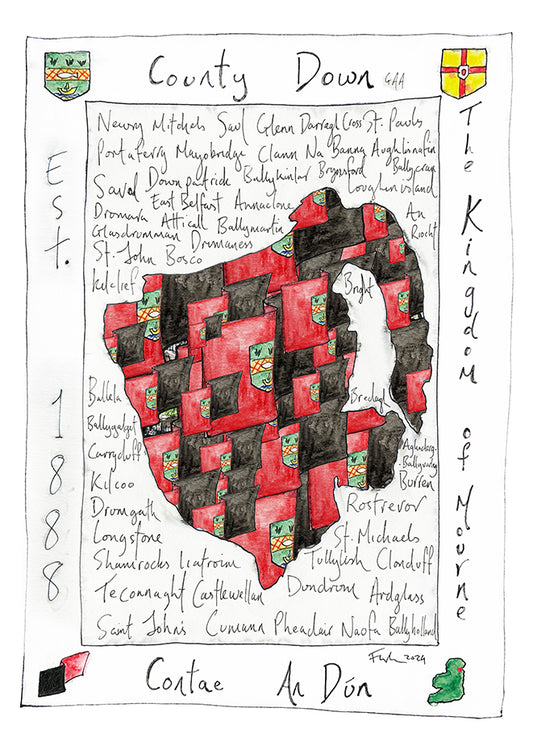 County Down GAA
Est. 1888
The Kingdom of Mourne
Newry Mitchels Saul Glenn Darragh Cross St. Pauls
Portaferry Mayobridge Clann Na Banna Aughlisnafin
Saval Downpatrick Ballykinlar Bryansford Ballycran
East Belfast Annaclone Loughinisland
Dromara Atticall Ballymartin An Riocht
Glasdrumman Drumaness
St. John Bosco
Kilclief
Bright
Ballela
Bredagh
Ballygalget
Carryduff
Aghaderg-
Ballyvarley
Kilcoo
Burren
Drumgath
Rostrevor
Longstone
St. Michaels
Shamrocks Liatroim Tullylish Clonduff
Teconnaght Castlewellan Dundrum Ardglass
Saint John's Cumann Pheadair Naofa Ballyholland
2024
Contae An Dún